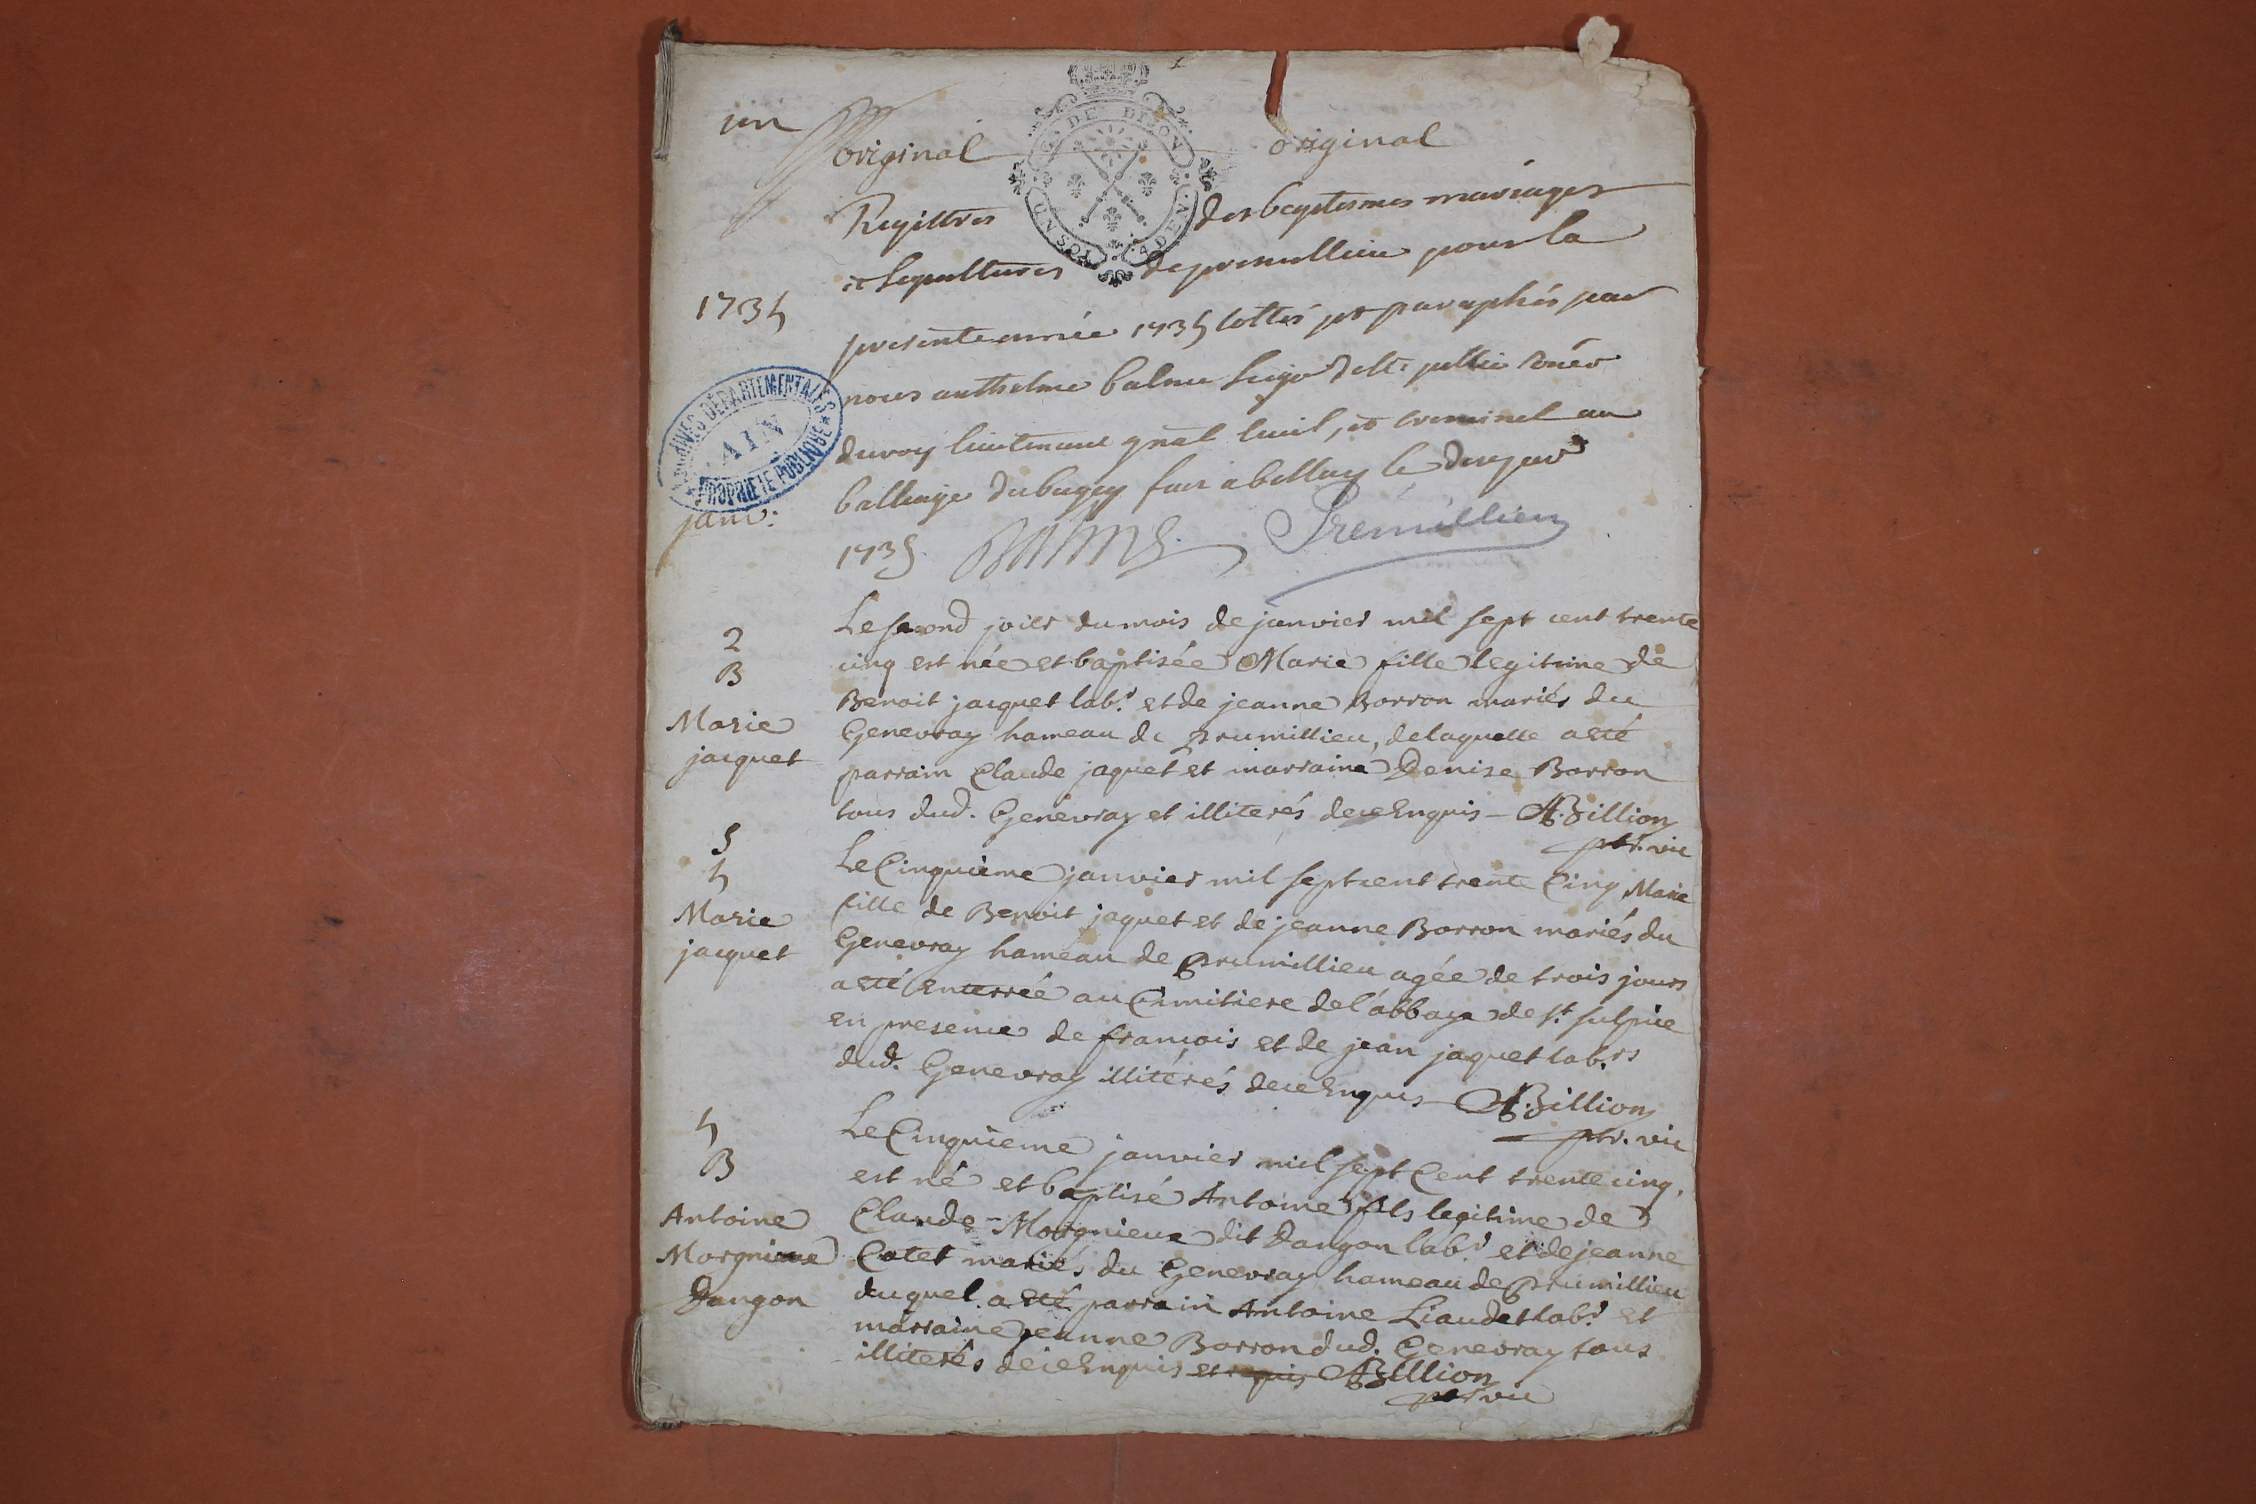 1
un
original original
G. DE DIJON
UN SOL 4 DEN.
Registres des baptesmes mariages
et sepultures de premillieu pour la
1735
presente année 1735 cottés et paraphés par
nous anthelme balme seigr de Ste jullie coner
du roy lieutenant gnâl civil, et criminel au
balliage du bugey fait a belley le
1735. BALME. Prémillieu
ARCHIVES DÉPARTEMENTALES
AIN
PROPRIÉTÉ PUBLIQUE
janv:
2
B
Marie
jacquet
Le second jour du mois de janvier mil sept cent trente
cinq est née et baptisée Marie fille legitime de
Benoit jacquet labr. et de jeanne Borron mariés du
Genevray hameau de prumillieu, de laquelle a eté
parrain Claude jaquet et marraine Denise Borron
tous dud. Genevray et illiterés de ce Enquis – A. Billion
ptr. vic
5
h
Marie
jacquet
Le Cinquieme janvier mil sept cent trente Cinq Marie
fille de Benoit jaquet et de jeanne Borron mariés du
Genevray hameau de prumillieu agée de trois jours
a eté enterrée au Cimitiere de l'abbaye de St. sulpice
en presence de francois et de jean jaquet labrs
dud. Genevray illiterés de ce Enquis A. Billion
ptr. vic
h
B
Antoine
Morgnieux
Dangon
Le Cinquieme janvier mil sept Cent trente cinq,
est né et baptisé Antoine fils legitime de
Claude-Morgnieux dit Dangon labr. et de jeanne
Catet mariés du Genevray hameau de prumillieu
duquel a eté parrain Antoine Liaudet labr. et
marraine jeanne Borron dud. Genevray tous
illiterés de ce Enquis et requis A Billion
ptr vic